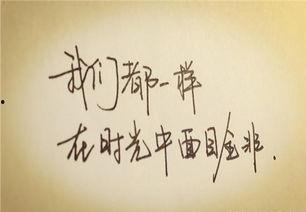 我们都一样
在时光中面目全非.